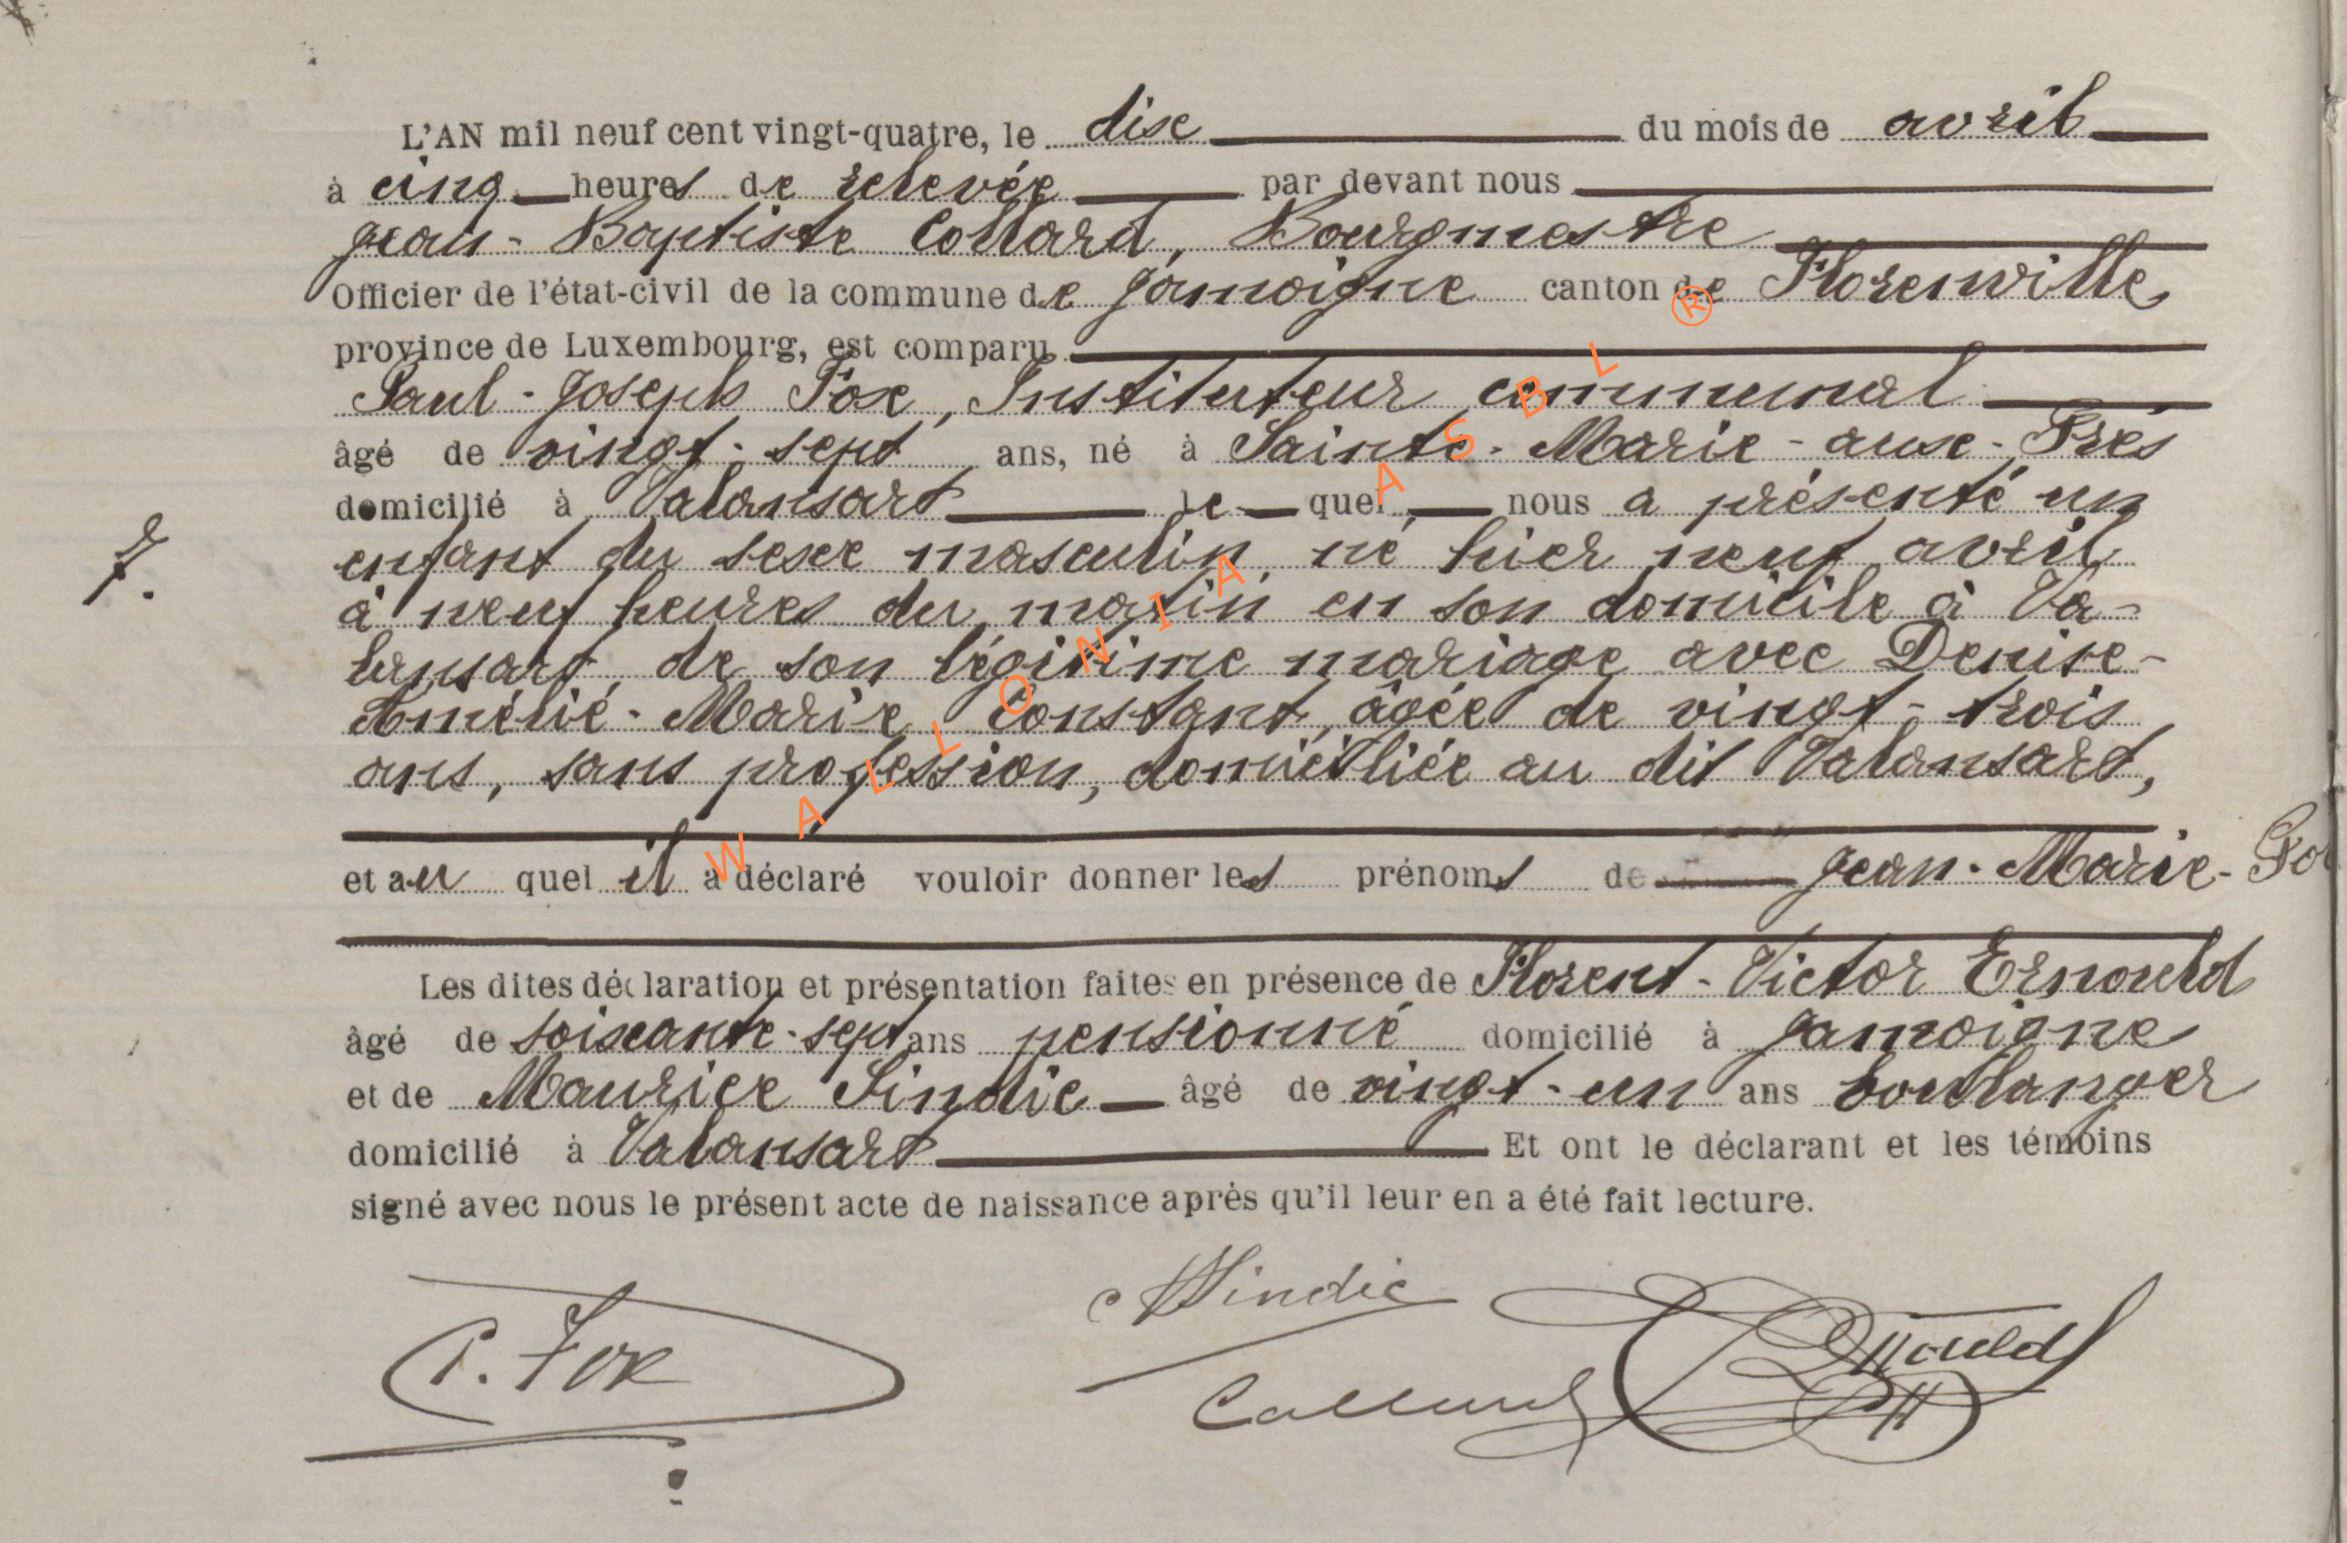 L'AN mil neuf cent vingt-quatre, le dix du mois de avril
à cinq heures de relevée par devant nous
Jean-Baptiste Collard, Bourgmestre
Officier de l'état-civil de la commune de Jamoigne canton de Florenville
province de Luxembourg, est comparu
Paul-Joseph Fox, Instituteur communal
âgé de vingt-sept ans, né à Sainte-Marie-aux-Prés
domicilié à Valansart le quel nous a présenté un
enfant du sexe masculin, né hier neuf avril
7.
à neuf heures du matin en son domicile à Va-
lansart, de son légitime mariage avec Denise-
Amélie-Marie Constant, âgée de vingt-trois
ans, sans profession, domiciliée au dit Valansart,
et au quel il a déclaré vouloir donner les prénoms de Jean-Marie-
Les dites déclaration et présentation faites en présence de Florent-Victor Ernould
âgé de soixante-sept ans pensionné domicilié à Jamoigne
et de Maurice Sindic âgé de vingt-un ans boulanger
domicilié à Valansart Et ont le déclarant et les témoins
signé avec nous le présent acte de naissance après qu'il leur en a été fait lecture.
MSindic
P. Fox
Collard
Ernould
WALLONIA ASBL ®